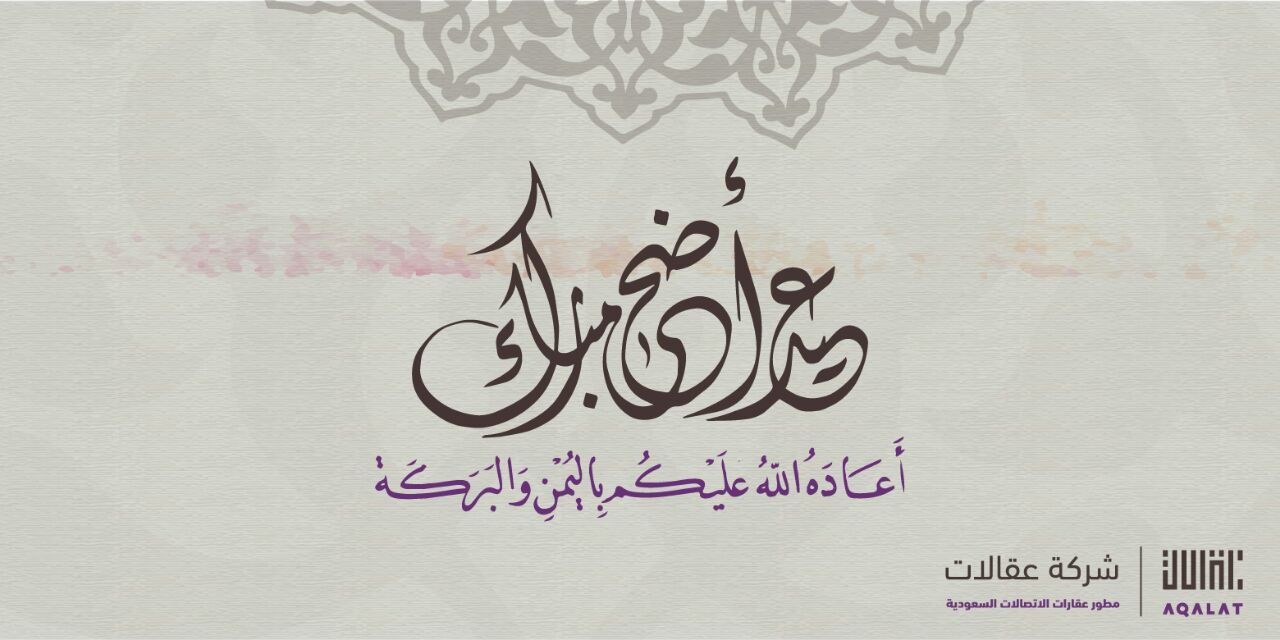 عيد أضحى مبارك
أَعَادَهُ اللّٰهُ عَلَيْكُم بِاليُمْنِ وَالبَرَكَة
شركة عقالات
مطور عقارات الاتصالات السعودية
عقالات
AQALAT